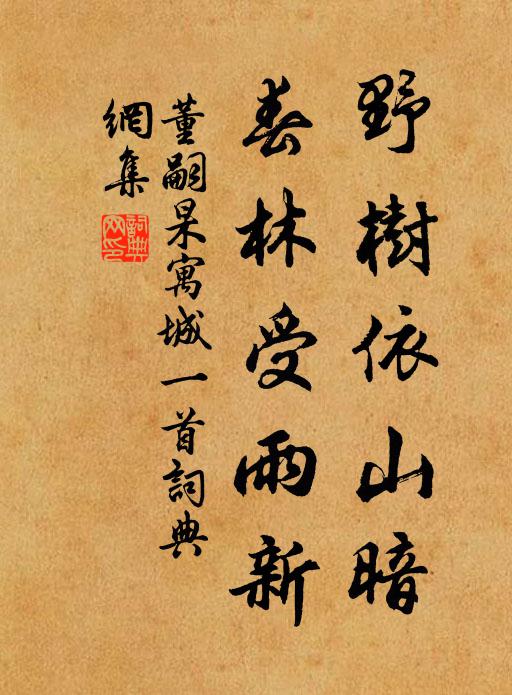 野樹依山暗
春林受雨新
董嗣杲寓城一首詞典
網集
詞典網印